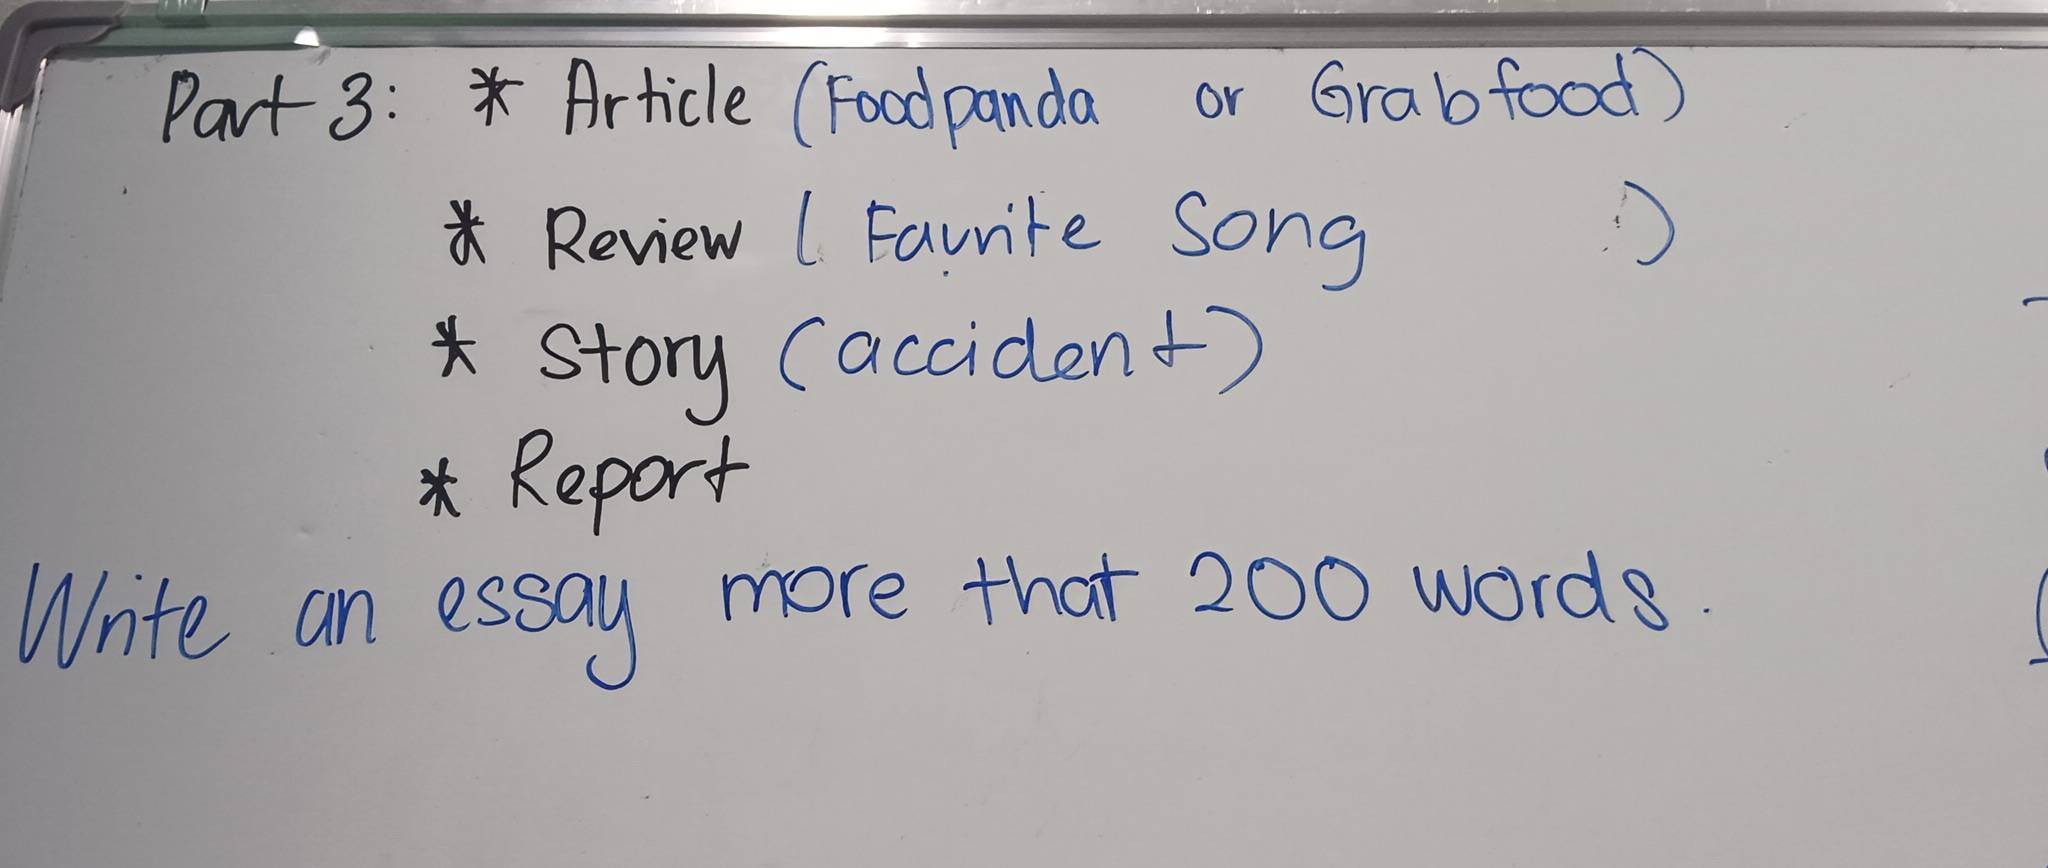 Part 3: * Article (Foodpanda or Grabfood)
* Review ( Favrite Song )
* Story (accident)
* Report
Write an essay more that 200 words.